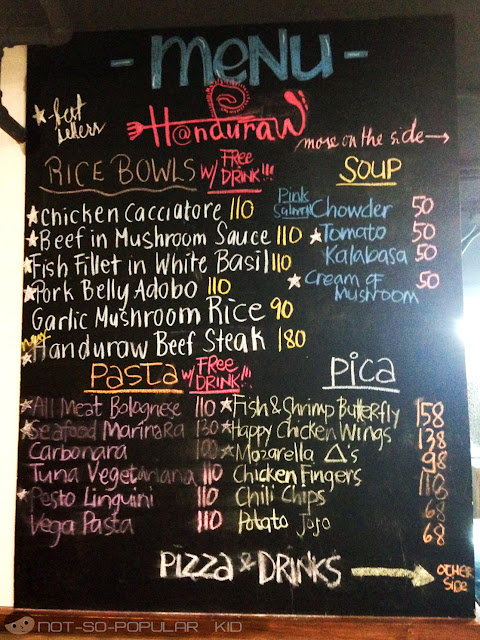 - MENU -
★-best sellers
H@nduraw
more on the side →
RICE BOWLS w/ FREE DRINK!!!
★Chicken Cacciatore 110
★Beef in Mushroom Sauce 110
★Fish Fillet in White Basil 110
★Pork Belly Adobo 110
Garlic Mushroom Rice 90
new
★Handuraw Beef Steak 180
SOUP
Pink Salmon Chowder 50
★Tomato 50
Kalabasa 50
★Cream of Mushroom 50
PASTA w/ FREE DRINK!!!
★All Meat Bolognese 110
★Seafood Marinara 130
Carbonara 100
Tuna Vegetariana 110
★Pesto Linguini 110
Vega Pasta 110
PICA
★Fish & Shrimp Butterfly 158
★Happy Chicken Wings 138
★Mozarella △'s 98
Chicken Fingers
Chili Chips 68
Potato Jojo 68
PIZZA & DRINKS → OTHER SIDE
NOT-SO-POPULAR KID